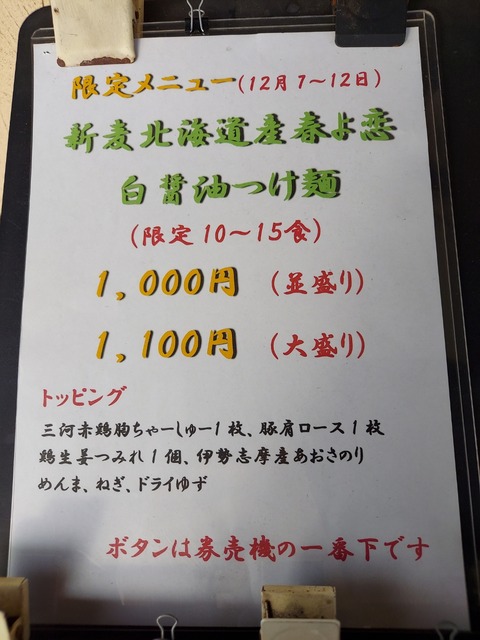 限定メニュー(12月7～12日)
新麦北海道産春よ恋
白醤油つけ麺
(限定10～15食)
1,000円 (並盛り)
1,100円 (大盛り)
トッピング
三河赤鶏胸ちゃーしゅー1枚、豚肩ロース1枚
鶏生姜つみれ1個、伊勢志摩産あおさのり
めんま、ねぎ、ドライゆず
ボタンは券売機の一番下です